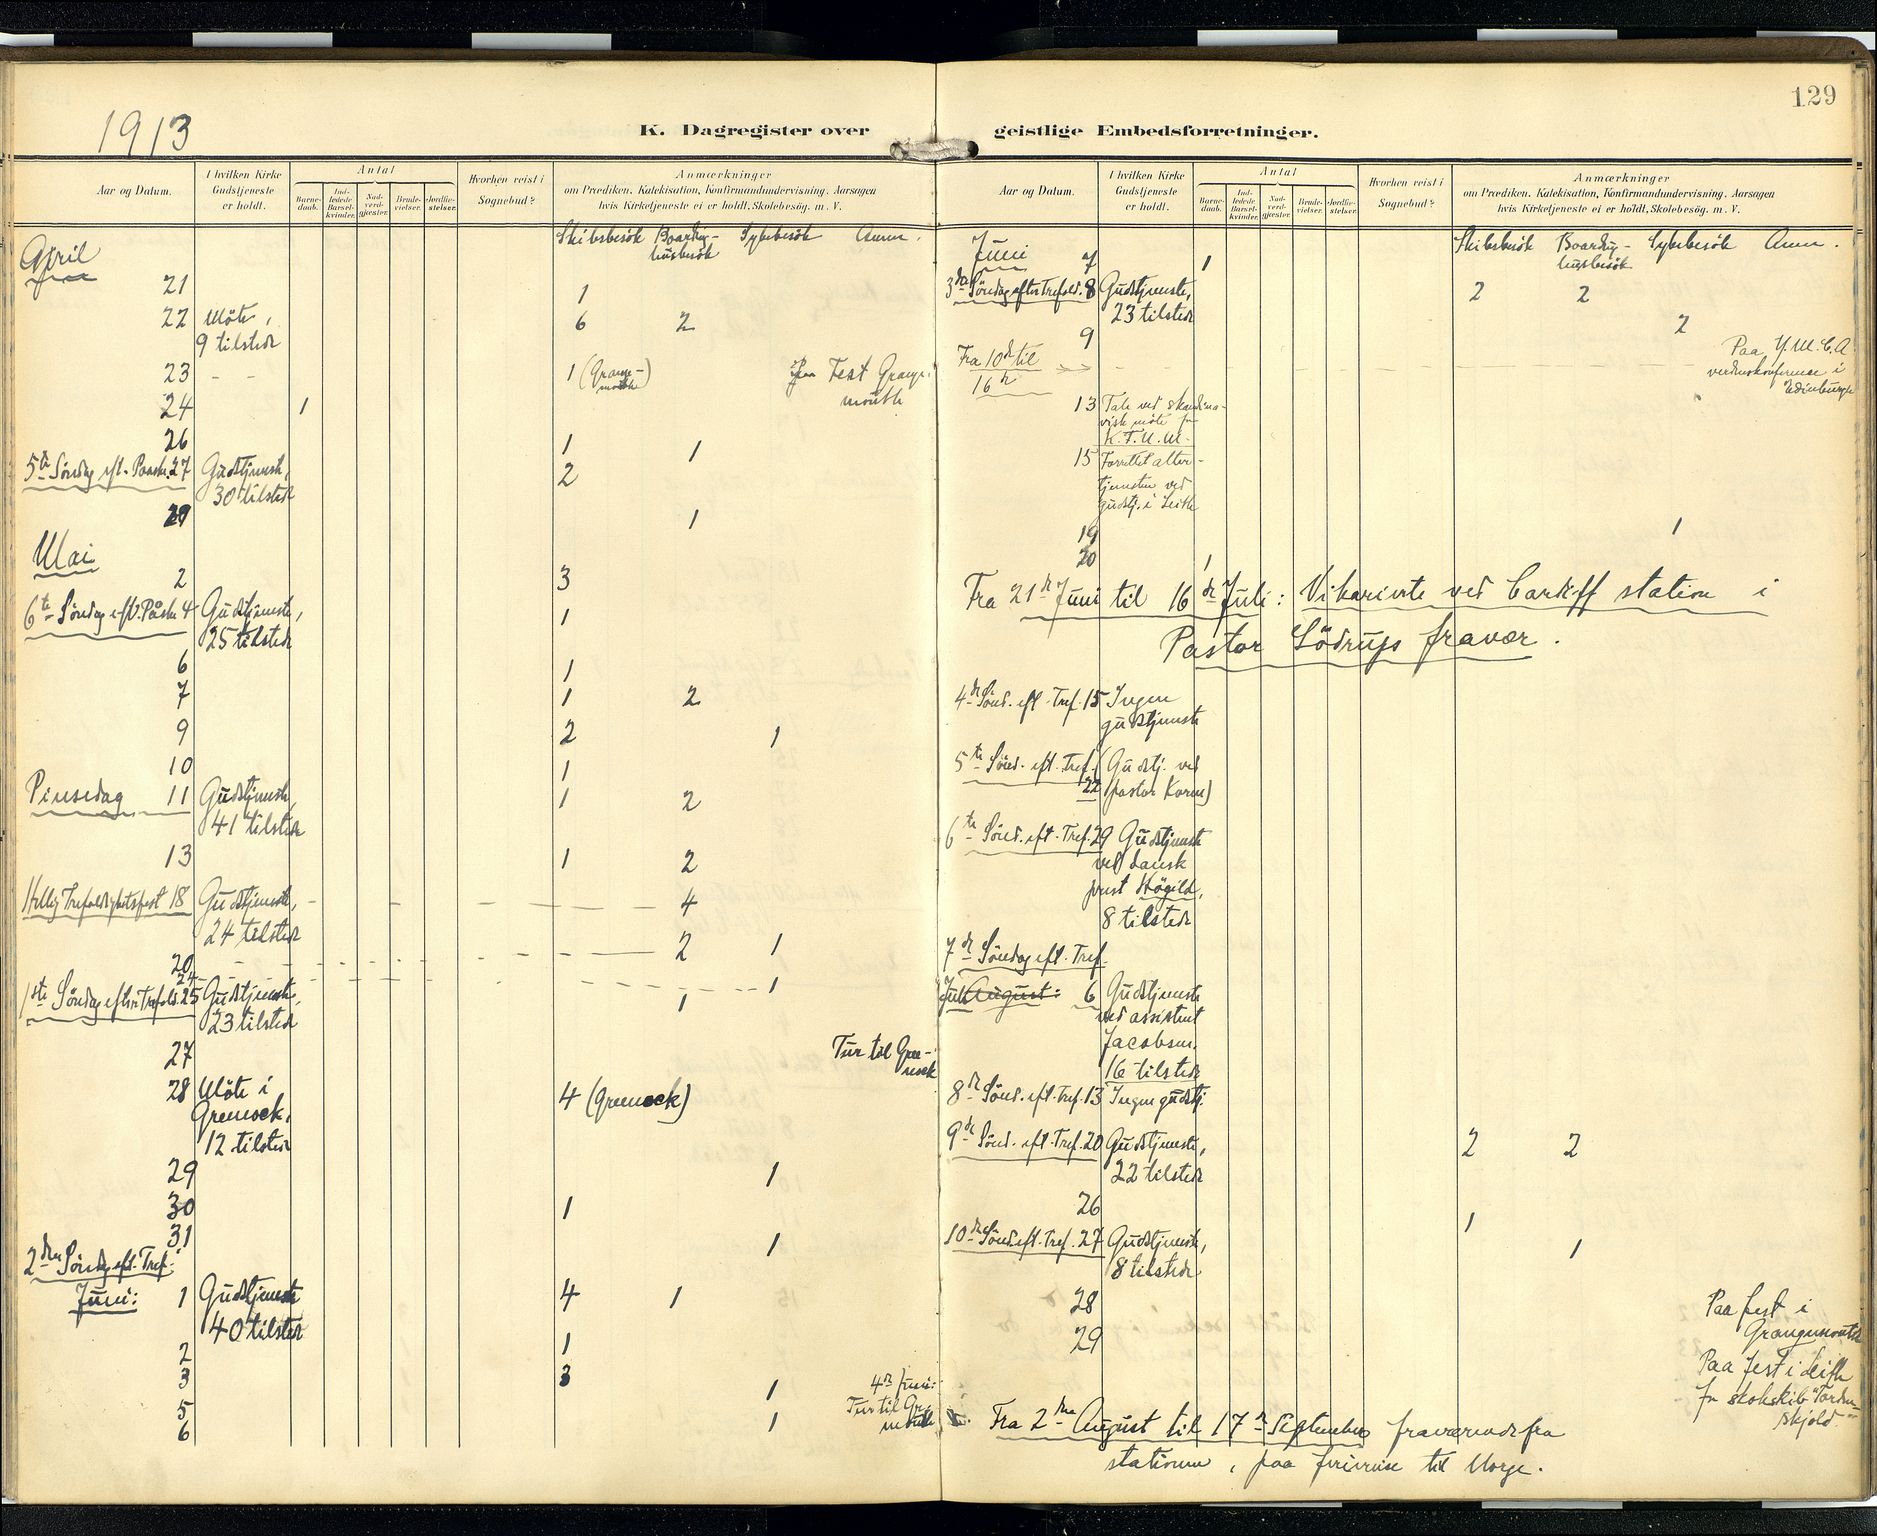 129
1913
K. Dagregister over geistlige Embedsforretninger.
Aar og Datum.
I hvilken Kirke Gudstjeneste er holdt.
Antal
Barne-daab.
Ind-ledede Barsel-kvinder.
Nad-verd-gjester.
Brude-vielser.
Jordfæ-stelser.
Hvorhen reist i Sognebud?
Anmærkninger
om Prædiken, Katekisation, Konfirmandundervisning, Aarsagen
hvis Kirketjeneste ei er holdt, Skolebesøg. m. V.
Skibsbesök Boarding-husbesök Sykebesök Anm.
April
21 1
22 Möte, 6 2
9 tilstede
23 - - 1 (Grange-mouth) Paa Fest Grange-mouth
24 1
26 1 1
5te Söndag eft. Paaske 27 Gudstjeneste, 2
30 tilstede
29 1
Mai
2 3
6te Söndag eft. Påske 4 Gudstjeneste, 1
25 tilstede
6 1
7 1 2
9 2 1
10 1
Pinsedag 11 Gudstjeneste, 1 2
41 tilstede
13 1 2
Hellig Trefoldighetsfest 18 Gudstjeneste, 4
24 tilstede
20 2 1
24 1
1ste Söndag efter Trefold. 25 Gudstjeneste, 1
23 tilstede
27 Tur til Gree-nock
28 Möte i 4 (Greenock)
Greenock,
12 tilstede
29 1
30 1
31 1
2den Söndag eft. Tref.
Juni: 1 Gudstjeneste 4 1
40 tilstede
2 1
3 3
5 1 4de Juni:
6 1 Tur til
Aar og Datum.
I hvilken Kirke Gudstjeneste er holdt.
Antal
Barne-daab.
Ind-ledede Barsel-kvinder.
Nad-verd-gjester.
Brude-vielser.
Jordfæ-stelser.
Hvorhen reist i Sognebud?
Anmærkninger
om Prædiken, Katekisation, Konfirmandundervisning, Aarsagen
hvis Kirketjeneste ei er holdt, Skolebesøg. m. V.
Skibsbesök Boarding-husbesök Sykebesök Anm.
Juni 7 1
3die Söndag efter Trefold. 8 Gudstjeneste, 2 2
23 tilstede
9 2
Fra 10de til 16de Paa Y.M.C.A.
verdenskonferense i
Edinburgh
13 Tale ved skandina-
visk möte for
K.F.U.M.
15 Forrettet alter-
tjenesten ved
gudstj. i Leith
19 1
20 1
Fra 21de Juni til 16de Juli: Vikarierte ved Cardiff station i
Pastor Södrups fravær.
4de Sönd. eft. Tref. 15 Ingen
gudstjeneste
5te Sönd. eft. Tref. 22 (Gudstj. ved
pastor )
6te Sönd. eft. Tref. 29 Gudstjeneste
ved dansk
prest Högild,
8 tilstede
7de Söndag eft. Tref.
Juli August: 6 Gudstjeneste
ved assistent
Jacobsen.
16 tilstede
8de Sönd. eft. Tref. 13 Ingen gudstj.
9de Sönd. eft. Tref. 20 Gudstjeneste, 2 2
22 tilstede
26 1
10de Sönd. eft. Tref. 27 Gudstjeneste, 1
8 tilstede
28 Paa fest i
Grangemouth
29 Paa fest i Leith
for skoleskib "Torden-
skjold"
Fra 2den August til 17de September fraværende fra
stationen, paa feriereise til Norge.